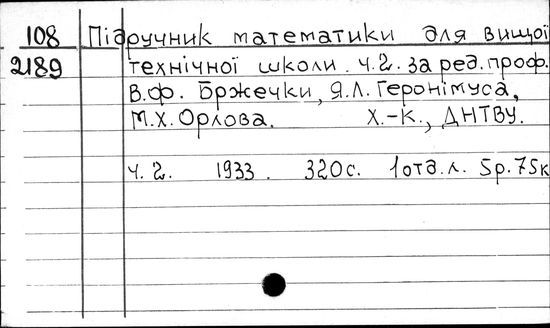 108 Підручник математики для вищої
2189 технічної школи. ч.2. за ред. проф.
В.Ф. Бржечки, Я.Л. Геронімуса,
М.Х. Орлова. Х.-К., ДНТВУ.
ч. 2. 1933. 320с. 1отд.л. 5р.75к